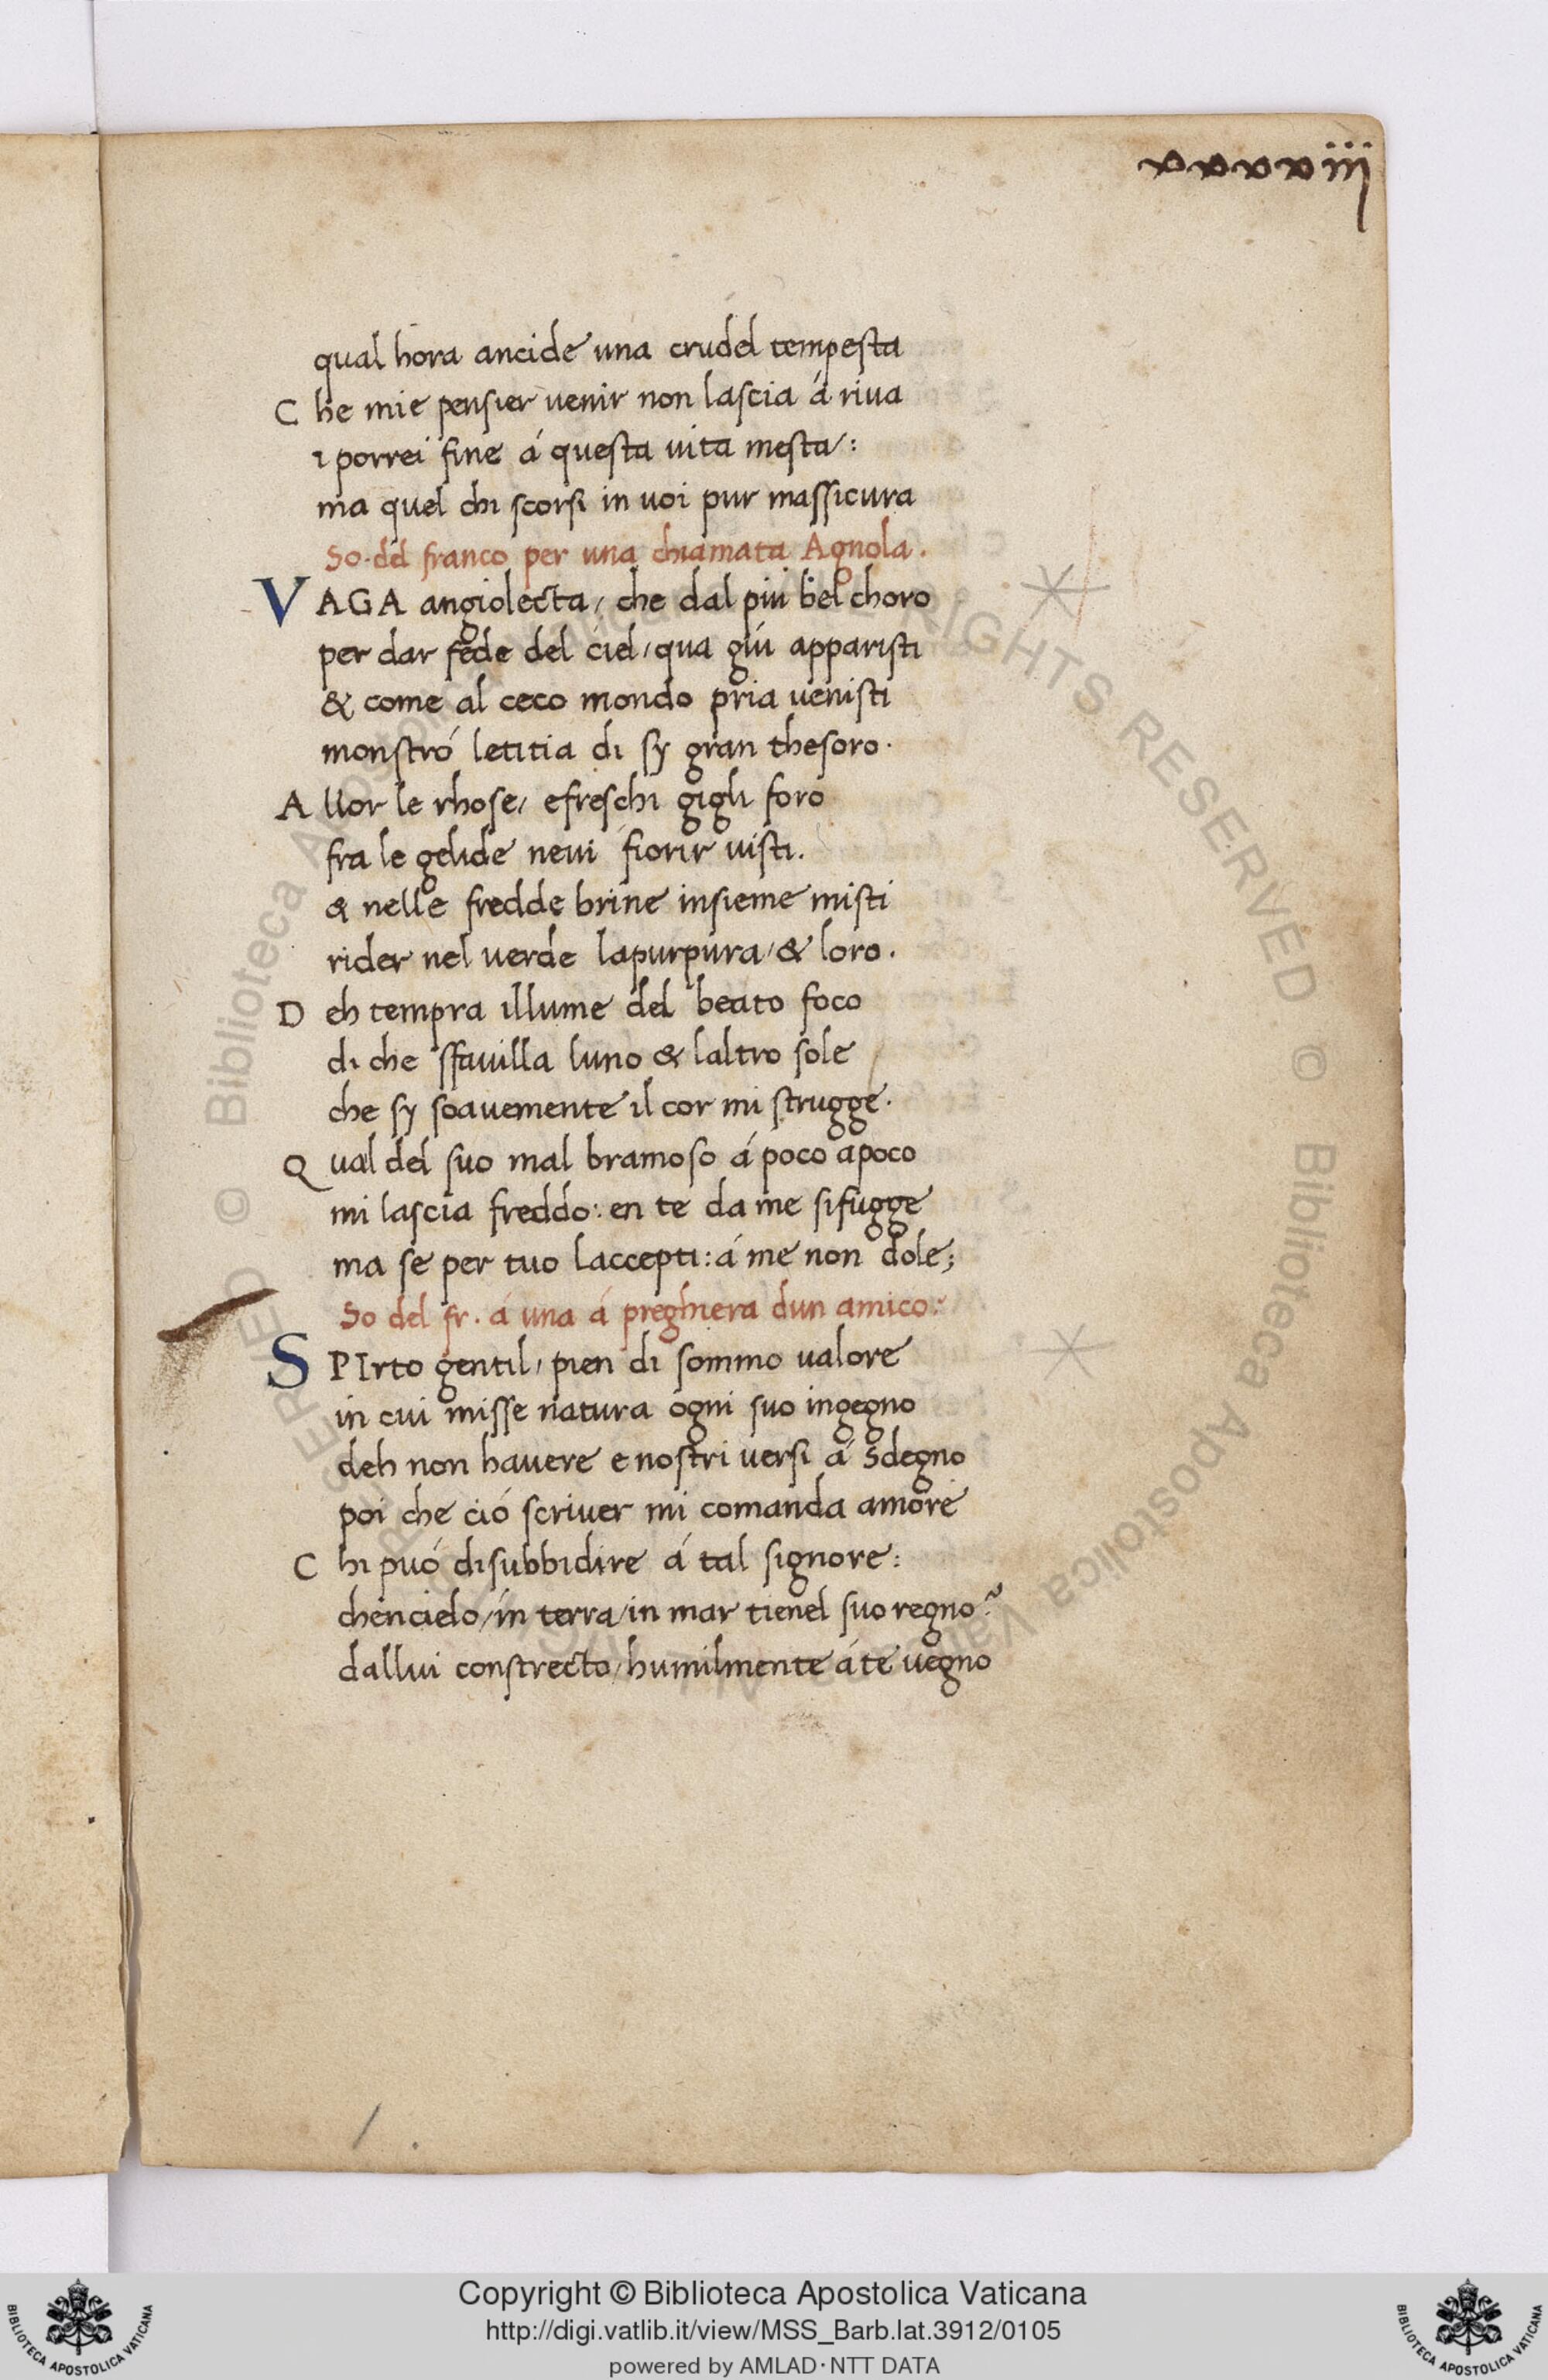 xxxxiij
qual hora ancide una crudel tempesta
C he mie pensier uenir non lascia á riua
i porrei fine á questa uita mesta:
ma quel chi scorsi in uoi pur massicura
So. del franco per una chiamata Agnola.
V AGA angiolecta / che dal piú bel choro
per dar fede del ciel / qua giú apparisti
& come al ceco mondo pria uenisti
monstró letitia di sy gran thesoro.
A llor le rhose / efreschi gigli foro
fra le gelide neui fiorir uisti.
& nelle fredde brine insieme misti
rider nel uerde lapurpura / & loro.
D eh tempra illume del beato foco
di che sfauilla luno & laltro sole
che sy soauemente il cor mi strugge.
Q ual del suo mal bramoso á poco apoco
mi lascia freddo: en te da me sifugge
ma se per tuo laccepti: á me non dole;
So del fr. á una á preghiera dun amico:
S PIrto gentil / pien di sommo ualore
in cui misse natura ogni suo ingegno
deh non hauere e nostri uersi á sdegno
poi che ció scriuer mi comanda amore
C hi puó disubbidire á tal signore:
chencielo / in terra / in mar tienel suo regno?
dallui constrecto / humilmente á te uegno
© Biblioteca Apostolica Vaticana ALL RIGHTS RESERVED © Biblioteca Apostolica Vaticana ALL RIGHTS RESERVED
Copyright © Biblioteca Apostolica Vaticana
http://digi.vatlib.it/view/MSS_Barb.lat.3912/0105
powered by AMLAD·NTT DATA
BIBLIOTECA APOSTOLICA VATICANA
BIBLIOTECA APOSTOLICA VATICANA